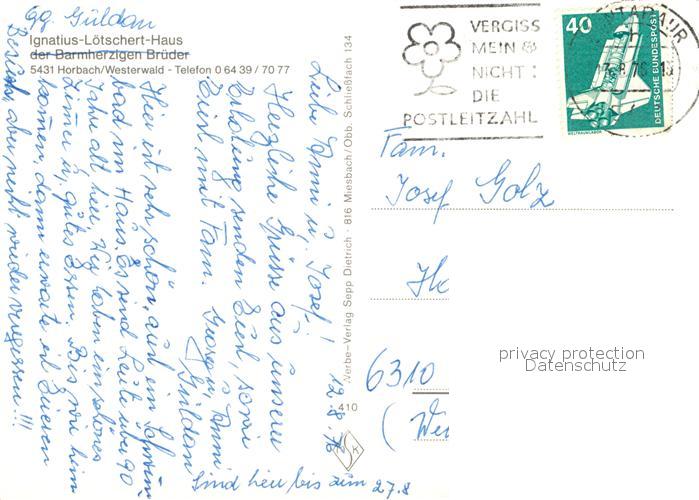 gg. Güldan
Ignatius-Lötschert-Haus
der Barmherzigen Brüder
5431 Horbach/Westerwald - Telefon 0 64 39 / 70 77
12.8.76
Liebe Anni u. Josef!
Herzliche Grüsse aus unserer
Erholung senden Euch, sowie
Euch mit Fam.
Georg u. Anni
Güldan
Hier ist sehr schön, auch ein Schwimm
bad im Haus. Es sind Leute über 90
Jahre alt hier. Wir haben ein schönes
Zimmer u. gutes Essen. Bis wir heim
kommen, dann erwarte ich Eueren
Besuch, aber nicht wieder vergessen!!!
Sind hier bis zum 27.8
Werbe-Verlag Sepp Dietrich · 816 Miesbach/Obb. Schließfach 134
410
VERGISS
MEIN
NICHT:
DIE
POSTLEITZAHL
40
DEUTSCHE BUNDESPOST
WELTRAUMLABOR
Fam.
Josef Golz
6310
privacy protection
Datenschutz